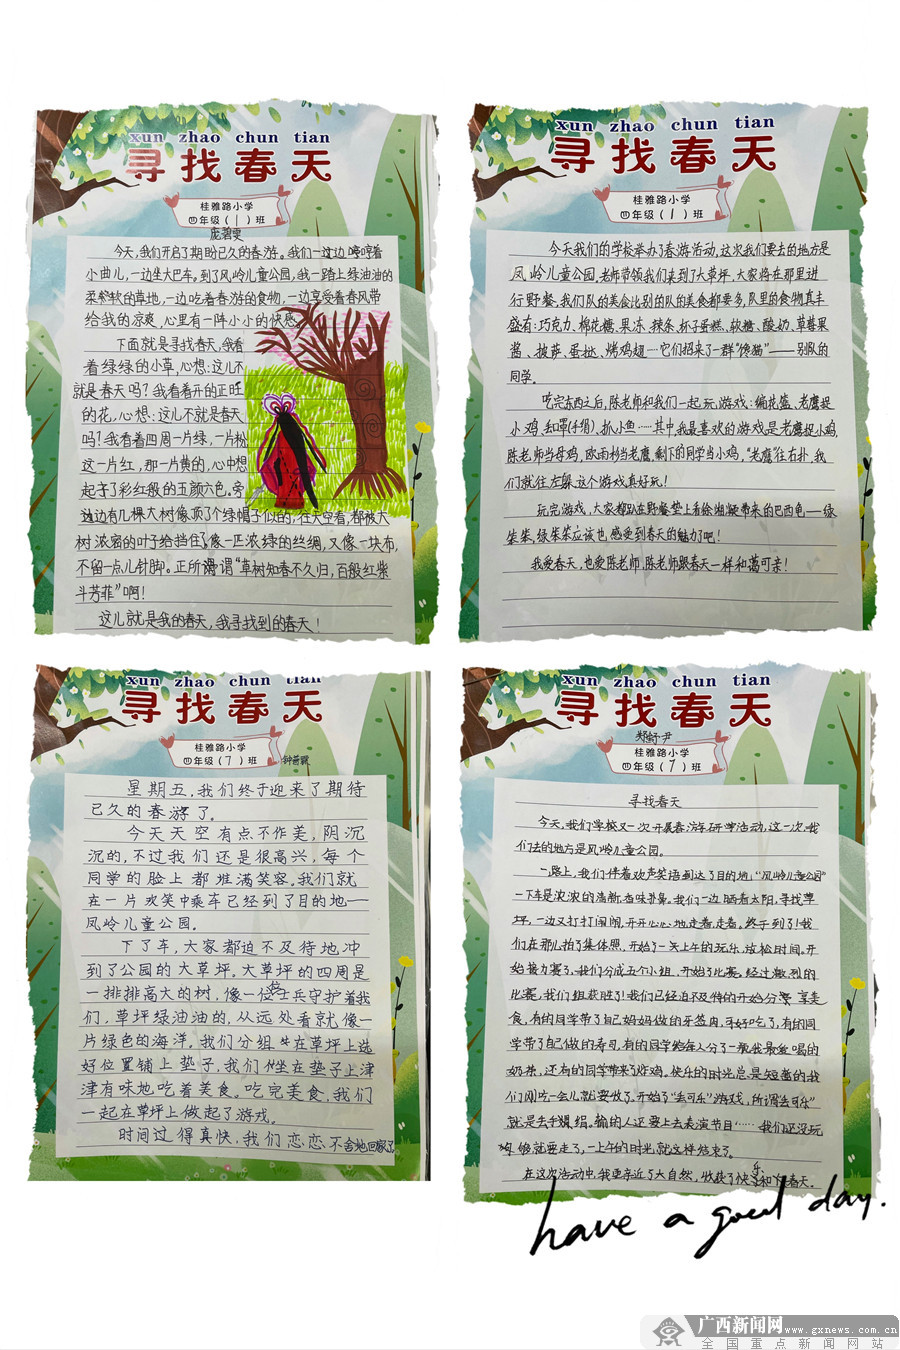 xun zhao chun tian
寻找春天
桂雅路小学
四年级(1)班
今天,我们开启了期盼已久的春游。我们一边哼着
小曲儿,一边坐大巴车。到了凤岭儿童公园,我一踏上绿油油的
柔软的草地,一边吃着春游的食物,一边享受着春风带
给我的凉爽,心里有一阵小小的快感。
下面就是寻找春天,我看
着绿绿的小草,心想:这儿不
就是春天吗?我看着开的正旺
的花,心想:这儿不就是春天
吗?我看着四周一片绿,一片粉,
这一片红,那一片黄的,心中想
起了彩虹般的五颜六色。旁
边有几棵大树像顶了个绿帽子似的,在天空看,都被大
树浓密的叶子给挡住了。像一匹浓绿的丝绸,又像一块布,
不留一点儿针脚。正所谓“草树知春不久归,百般红紫
斗芳菲”啊!
这儿就是我的春天,我寻找到的春天!
xun zhao chun tian
寻找春天
桂雅路小学
四年级(1)班
今天我们的学校举办了春游活动,这次我们要去的地方是
凤岭儿童公园。老师带领我们来到了大草坪,大家将在那里进
行野餐。我们队的美食比别的队的美食都要多,队里的食物真丰
盛有:巧克力、棉花糖、果冻、辣条、杯子蛋糕、软糖、酸奶、草莓果
酱、披萨、蛋挞、烤鸡翅…它们招来了一群“馋猫”——别队的
同学。
吃完东西之后,陈老师和我们一起玩游戏:编花篮、老鹰捉
小鸡、丢罩(手绢)、抓小鱼……其中我最喜欢的游戏是老鹰捉小鸡,
陈老师当母鸡,欧雨杉当老鹰,剩下的同学当小鸡,“老鹰”往右扑,我
们就往左躲,这个游戏真好玩!
玩完游戏,大家都趴在野餐垫上看徐湘凝带来的巴西龟——绿
笨笨,绿笨笨应该也感受到春天的魅力了吧!
我爱春天,也爱陈老师,陈老师跟春天一样和蔼可亲!
xun zhao chun tian
寻找春天
桂雅路小学
四年级(7)班
星期五,我们终于迎来了期待
已久的春游了。
今天天空有点不作美,阴沉
沉的,不过我们还是很高兴,每个
同学的脸上都堆满笑容。我们就
在一片欢笑中乘车已经到了目的地——
凤岭儿童公园。
下了车,大家都迫不及待地冲
到了公园的大草坪。大草坪的四周是
一排排高大的树,像一位位士兵守护着我
们,草坪绿油油的,从远处看就像一
片绿色的海洋。我们分组在草坪上选
好位置铺上垫子,我们坐在垫子上津
津有味地吃着美食。吃完美食,我们
一起在草坪上做起了游戏。
时间过得真快,我们恋恋不舍地回家了
xun zhao chun tian
寻找春天
桂雅路小学
四年级(7)班
寻找春天
今天,我们学校又一次开展春游研学活动,这一次,我
们去的地方是凤岭儿童公园。
一路上,我们伴着欢声笑语到达了目的地,“凤岭儿童公园”
一下车是浓浓的清新,香味扑鼻。我们一边晒着太阳,寻找草
坪,一边又打打闹闹,开开心心地走着,走着。终于到了!我
们在那儿拍了集体照,开始了一天上午的玩乐,放松时间。开
始接力赛了。我们分成五个小组,开始了比赛。经过激烈的
比赛,我们组获胜了!我们已经迫不及待的开始分享美
食,有的同学带了自己妈妈做的牙签肉,可好吃了,有的同
学带了自己做的寿司,有的同学给每人分了一瓶我最爱喝的
奶茶,还有的同学带来了炸鸡。快乐的时光总是短暂的,我
们刚吃一会儿就要做了。开始了“丢可乐”游戏,所谓“丢可乐”
就是丢手绢。输的人还要上去表演节目……我们还没玩
够就要走了,一上午的时光,就这样结束了。
在这次活动中,我更亲近了大自然,收获了快乐和春天。
have a good day.
广西新闻网 www.gxnews.com.cn
全国重点新闻网站